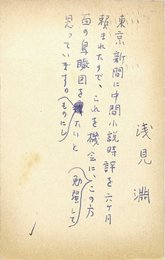 浅見淵
東京新聞に中間小説時評を六ヶ月
頼まれたので、これを機会に、この方
面の鳥瞰図を たいと
勉強して
ものにし
思っています。